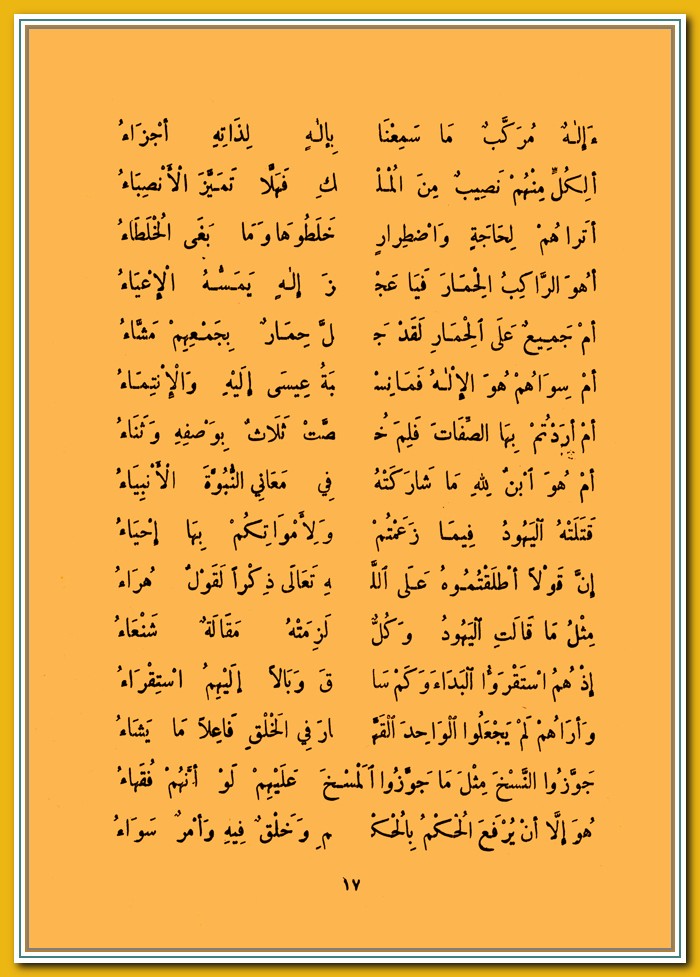 ءَإِلٰهٌ مُرَكَّبٌ مَا سَمِعْنَا بِإِلٰهٍ لِذَاتِهِ أَجْزَاءُ
أَلِكُلٍّ مِنْهُمْ نَصِيبٌ مِنَ الْمُلْكِ فَهَلَّا تَمَيَّزَ الْأَنْصِبَاءُ
أَتَرَاهُمْ لِحَاجَةٍ وَاضْطِرَارٍ خَلَطُوهَا وَمَا بَغَى الْخُلَطَاءُ
أَهُوَ الرَّاكِبُ الْحِمَارَ فَيَا عَجْزَ إِلٰهٍ يَمَسُّهُ الْإِعْيَاءُ
أَمْ جَمِيعٌ عَلَى ٱلْحِمَارِ لَقَدْ جَلَّ حِمَارٌ بِجَمْعِهِمْ مَشَّاءُ
أَمْ سِوَاهُمْ هُوَ الْإِلٰهُ فَمَا نِسْبَةُ عِيسَى إِلَيْهِ وَالْإِنْتِمَاءُ
أَمْ أَرَدْتُمْ بِهَا الصِّفَاتِ فَلِمَ خُصَّتْ ثَلَاثٌ بِوَصْفِهِ وَثَنَاءُ
أَمْ هُوَ ٱبْنٌ لِلّٰهِ مَا شَارَكَتْهُ فِي مَعَانِي النُّبُوَّةِ الْأَنْبِيَاءُ
قَتَلَتْهُ ٱلْيَهُودُ فِيمَا زَعَمْتُمْ وَلِأَمْوَاتِكُمْ بِهَا إِحْيَاءُ
إِنَّ قَوْلاً أَطْلَقْتُمُوهُ عَلَى ٱللَّهِ تَعَالَى ذِكْراً لَقَوْلٌ هُرَاءُ
مِثْلُ مَا قَالَتِ ٱلْيَهُودُ وَكُلٌّ لَزِمَتْهُ مَقَالَةٌ شَنْعَاءُ
إِذْ هُمُ اسْتَقْرَوُا ٱلْبَدَاءَ وَكَمْ سَاقَ وَبَالاً إِلَيْهِمُ اسْتِقْرَاءُ
وَأَرَاهُمْ لَمْ يَجْعَلُوا ٱلْوَاحِدَ ٱلْقَهَّارَ فِي الْخَلْقِ فَاعِلاً مَا يَشَاءُ
جَوَّزُوا النَّسْخَ مِثْلَ مَا جَوَّزُوا ٱلْمَسْخَ عَلَيْهِمْ لَوْ أَنَّهُمْ فُقَهَاءُ
هُوَ إِلَّا أَنْ يُرْفَعَ الْحُكْمُ بِالْحُكْمِ وَخَلْقٌ فِيهِ وَأَمْرٌ سَوَاءُ
١٧